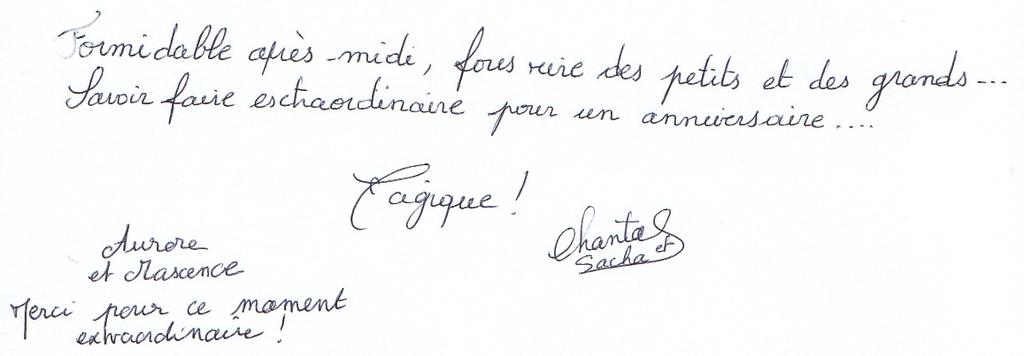 Formidable après-midi, fous rire des petits et des grands...
Savoir faire extraordinaire pour un anniversaire....
Magique !
Chantal et
Sacha
Aurore
et Maxence
Merci pour ce moment
extraordinaire !